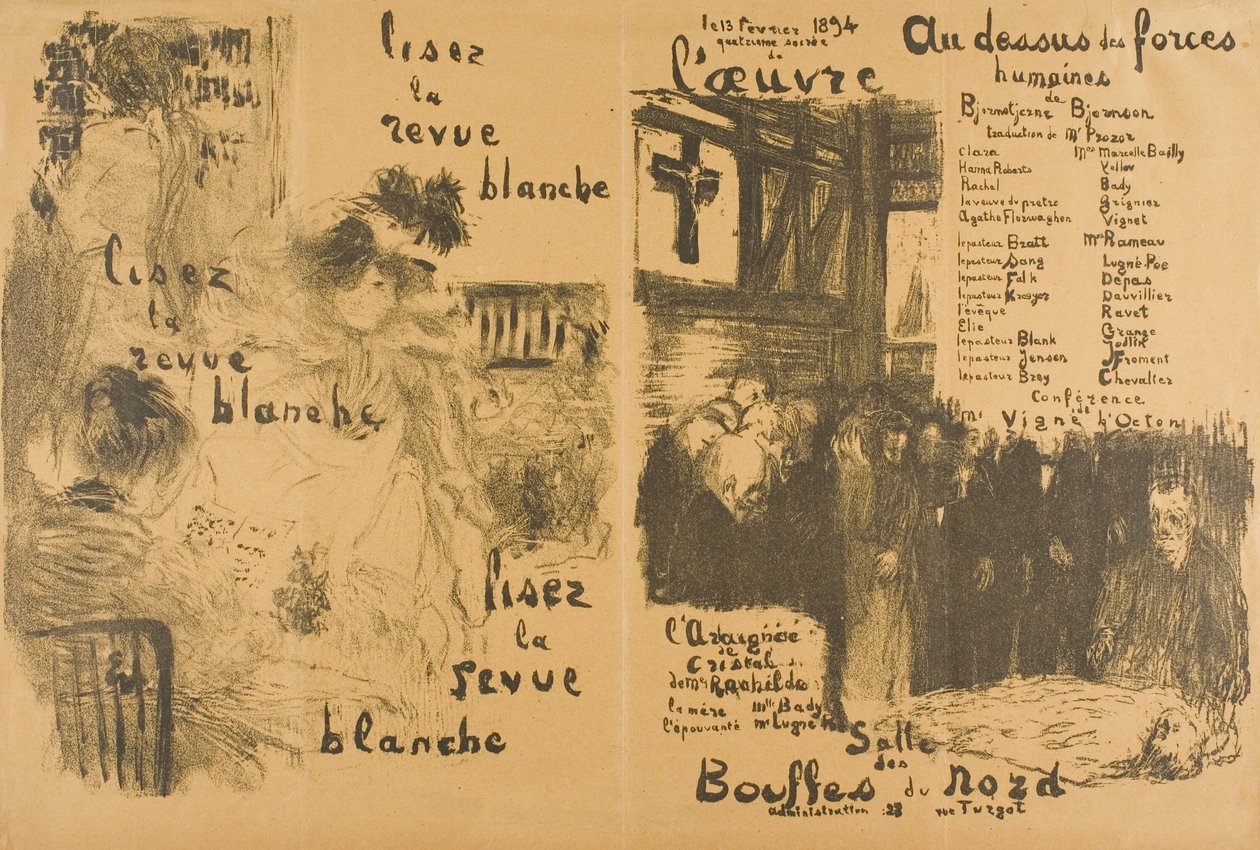 lisez
la
revue
blanche
lisez
la
revue
blanche
lisez
la
revue
blanche
EV
le 13 Fevrier 1894
quatrieme soirée
de
l'œuvre
Au dessus des forces
humaines
de
Bjornstjerne Bjornson
traduction de Mr Prozor
Clara Mmes Marcelle Bailly
Hanna Roberts Yellov
Rachel Bady
la veuve du pretre Grignier
Agathe Florwaghen Vignet
le pasteur Bratt Mrs Rameau
le pasteur Sang Lugné-Poe
le pasteur Falk Depas
le pasteur Kroeyer Dauvillier
l'évêque Ravet
Elie Grange
le pasteur Blank
le pasteur Jensen Froment
le pasteur Brey Chevalier
Conférence
de
Mr Vigné d'Octon
l'Araignée
de
Cristal
de Me Rachilde
la mére Mlle Bady
l'épouvanté Mr Lugné Poe
Salle
des
Bouffes du Nord
administration : 23 rue Turgot